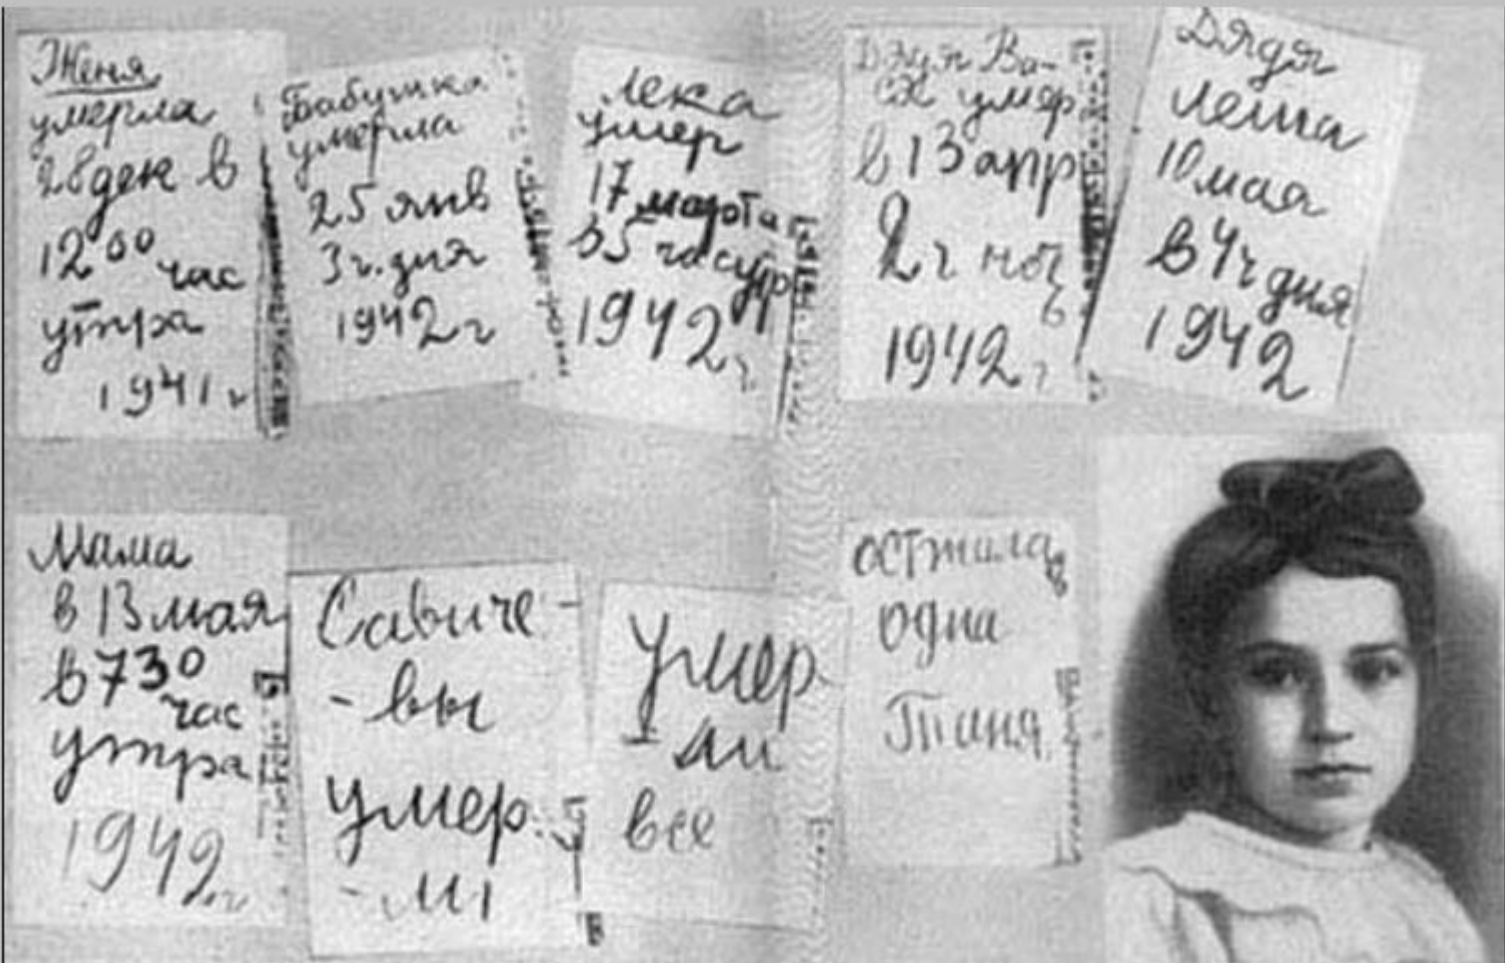 Женя
умерла
28 дек в
12 00 час
утра
1941 г
Бабушка
умерла
25 янв
3 г. дня
1942 г
Лека
умер
17 марта
в 5 час утр
1942 г.
Дядя Ва-
ся умер
в 13 апр
2 ч ноч
1942 г
Дядя
Леша
10 мая
в 4 ч дня
1942
Мама
в 13 мая
в 7 30
час
утра
1942 г
Савиче-
-вы
умер.
-ли
Умер
-ли
все
осталас
одна
Таня.